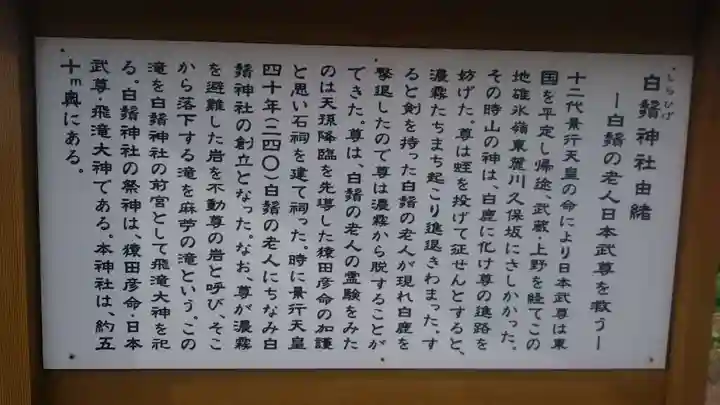 しらひげ
白鬚神社由緒
―白鬚の老人日本武尊を救う―
十二代景行天皇の命により日本武尊は東
国を平定し帰途、武蔵・上野を経てこの
地碓氷嶺東麓川久保坂にさしかかった。
その時山の神は、白鹿に化け尊の進路を
妨げた。尊は蛭を投げて征せんとすると、
濃霧たちまち起こり進退きわまった。す
ると剣を持った白鬚の老人が現れ白鹿を
撃退したので尊は濃霧から脱することが
できた。尊は、白鬚の老人の霊験をみた
のは天孫降臨を先導した猿田彦命の加護
と思い石祠を建て祠った。時に景行天皇
四十年(二四〇)白鬚の老人にちなみ白
鬚神社の創立となった。なお、尊が濃霧
を避難した岩を不動尊の岩と呼び、そこ
から落下する滝を麻苧の滝という。この
滝を白鬚神社の前宮として飛滝大神を祀
る。白鬚神社の祭神は、猿田彦命・日本
武尊・飛滝大神である。本神社は、約五
十m奥にある。